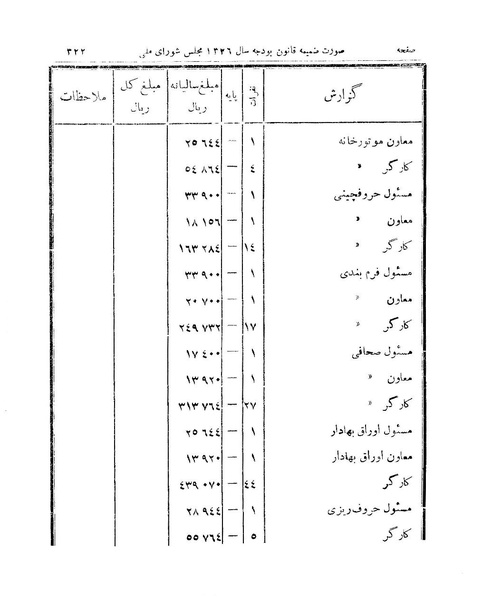 صفحه صورت ضمیمه قانون بودجه سال ۱۳۲۶ مجلس شورای ملی ۳۲۲
گزارش تعداد پایه مبلغ سالیانه ریال مبلغ کل ریال ملاحظات
معاون موتورخانه ۱ — ۲۵ ۶٤٤
کارگر » ٤ — ۵٤ ۸٦٤
مسئول حروفچینی ۱ — ۳۳ ۹۰۰
معاون » ۱ — ۱۸ ۱۵٦
کارگر » ۱٤ — ۱٦۳ ۲۸٤
مسئول فرم بندی ۱ — ۳۳ ۹۰۰
معاون » ۱ — ۲۰ ۷۰۰
کارگر » ۱۷ — ۲٤۹ ۷۳۲
مسئول صحافی ۱ — ۱۷ ٤۰۰
معاون » ۱ — ۱۳ ۹۲۰
کارگر » ۲۷ — ۳۱۳ ۷٦٤
مسئول اوراق بهادار ۱ — ۲۵ ٦٤٤
معاون اوراق بهادار ۱ — ۱۳ ۹۲۰
کارگر ٤٤ — ٤۳۹ ۰۷۰
مسئول حروف‌ریزی ۱ — ۲۸ ۹٤٤
کارگر ۵ — ۵۵ ۷٦٤